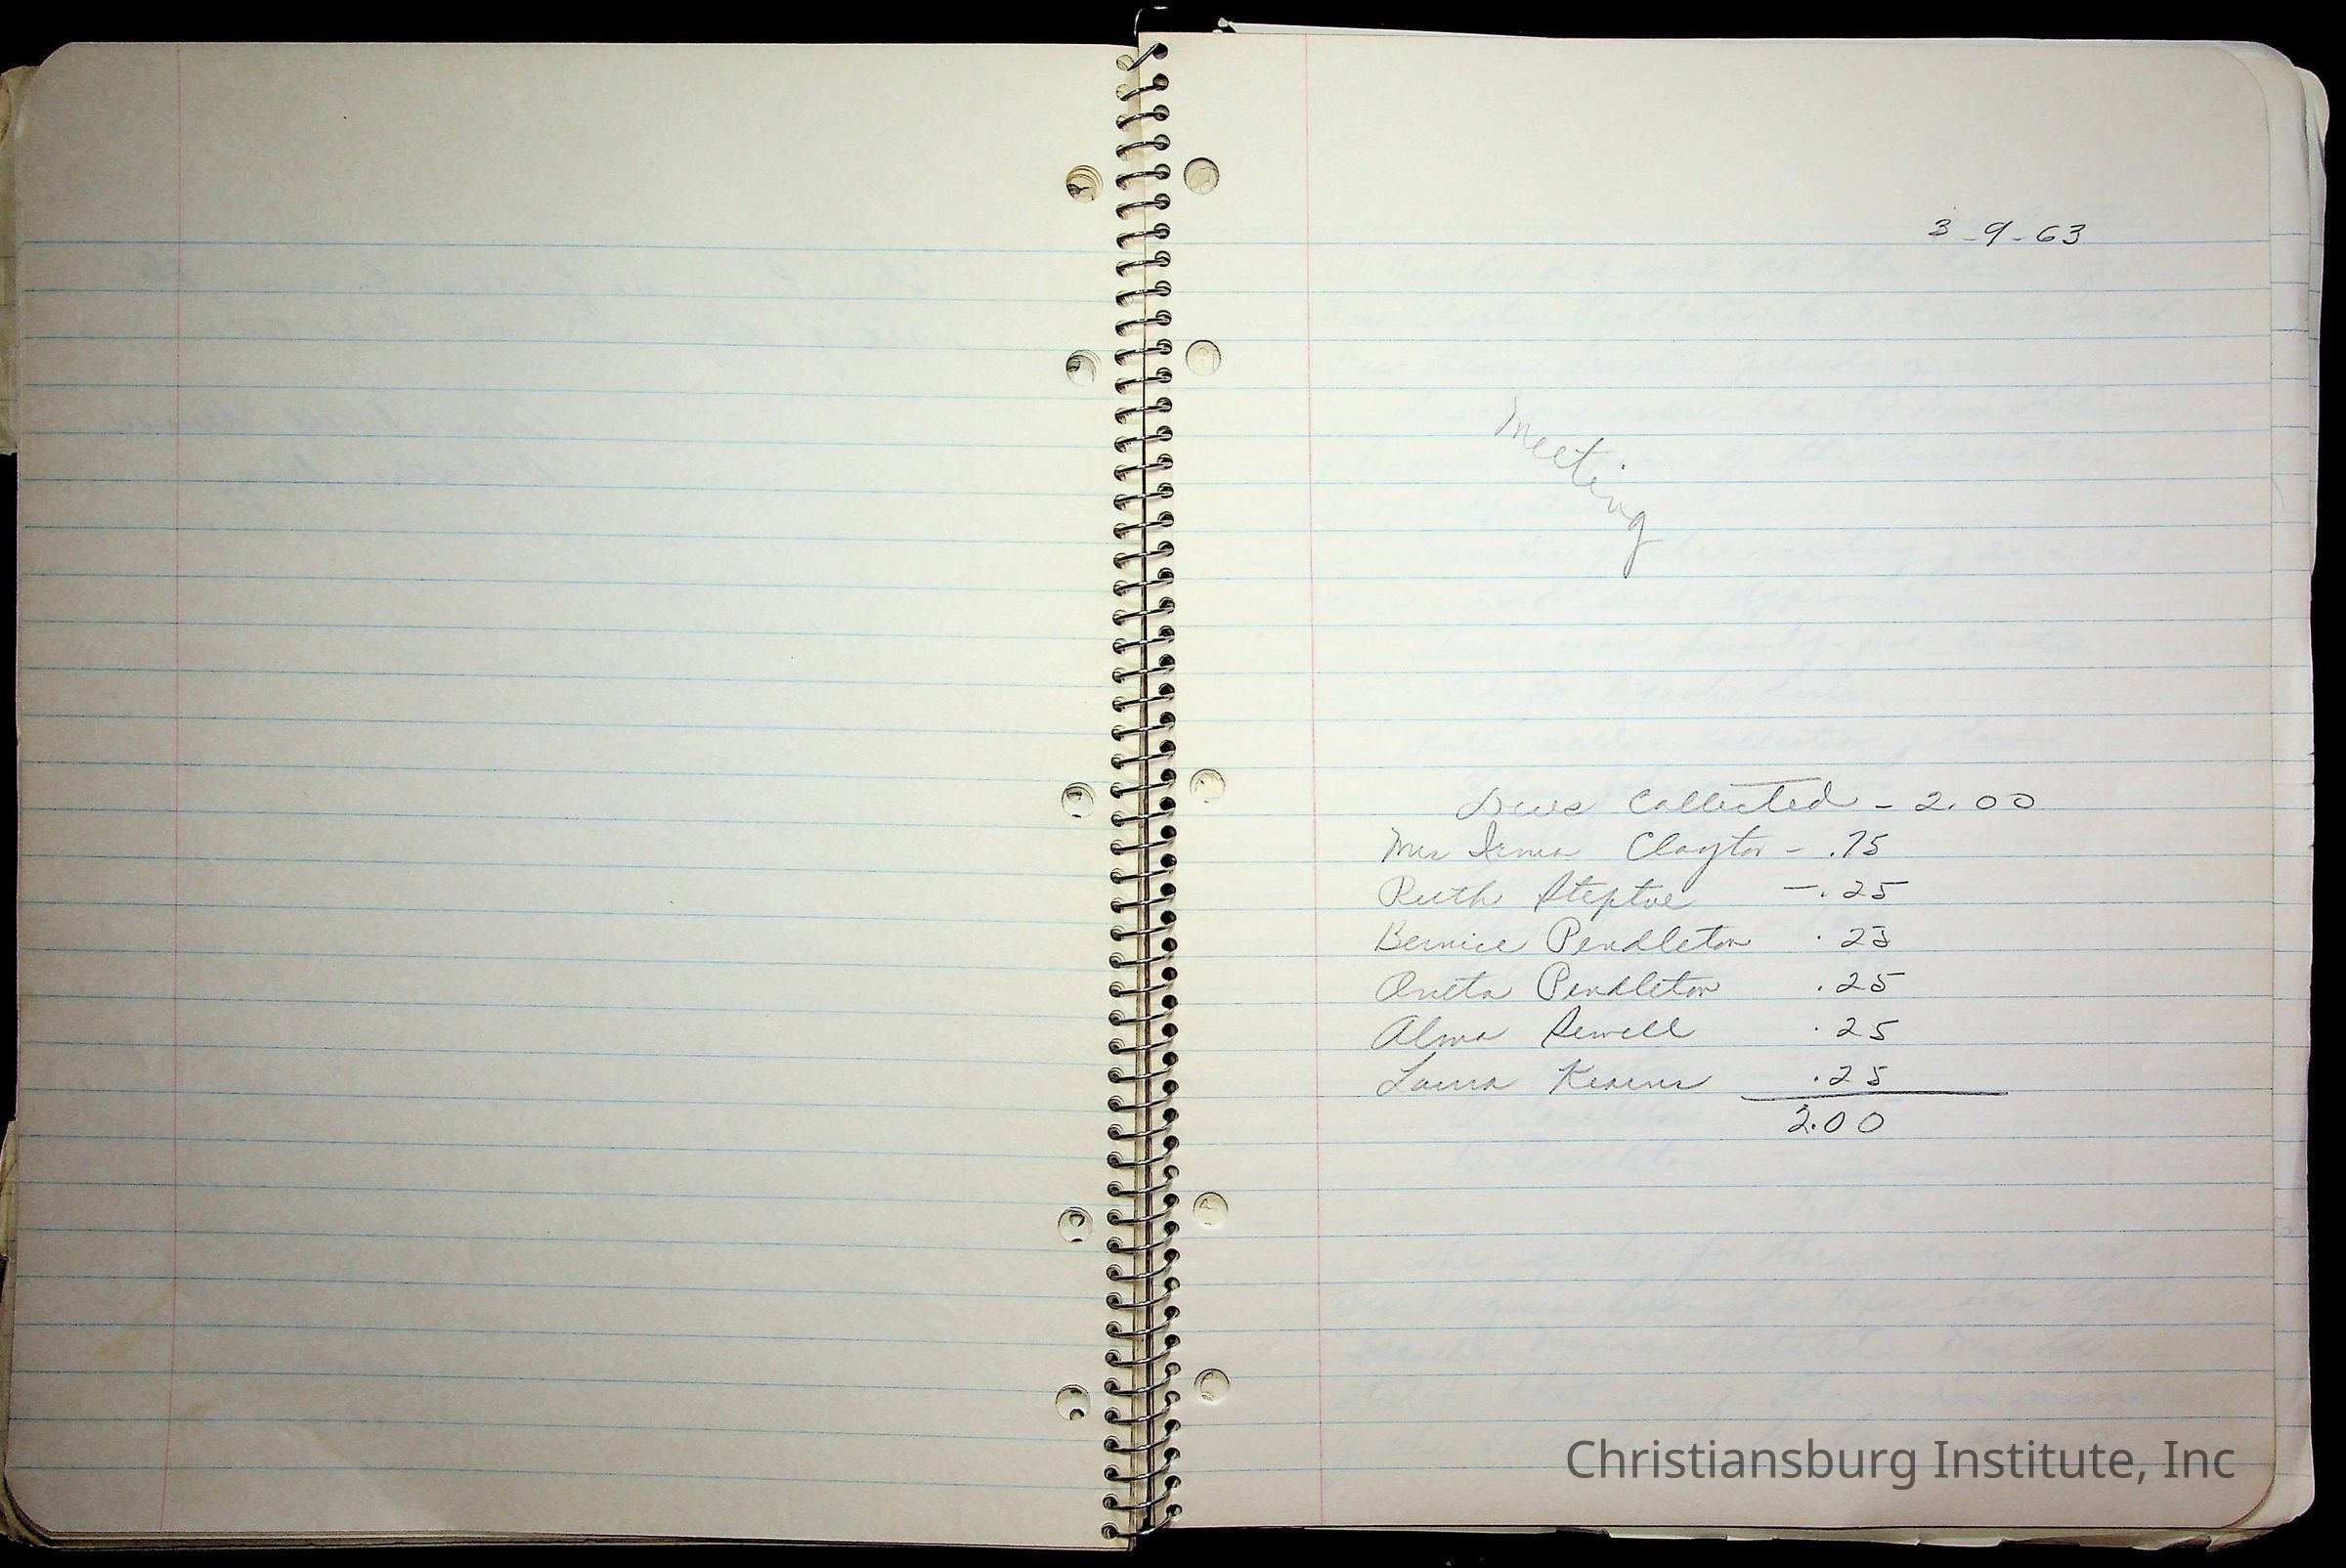 3-9-63
Meeting
Dues Collected - 2.00
Mrs Irma Clayton - .75
Ruth Steptoe - .25
Bernice Pendleton .25
Oneta Pendleton .25
Alma Sewell .25
Laura Kearns .25
2.00
Christiansburg Institute, Inc